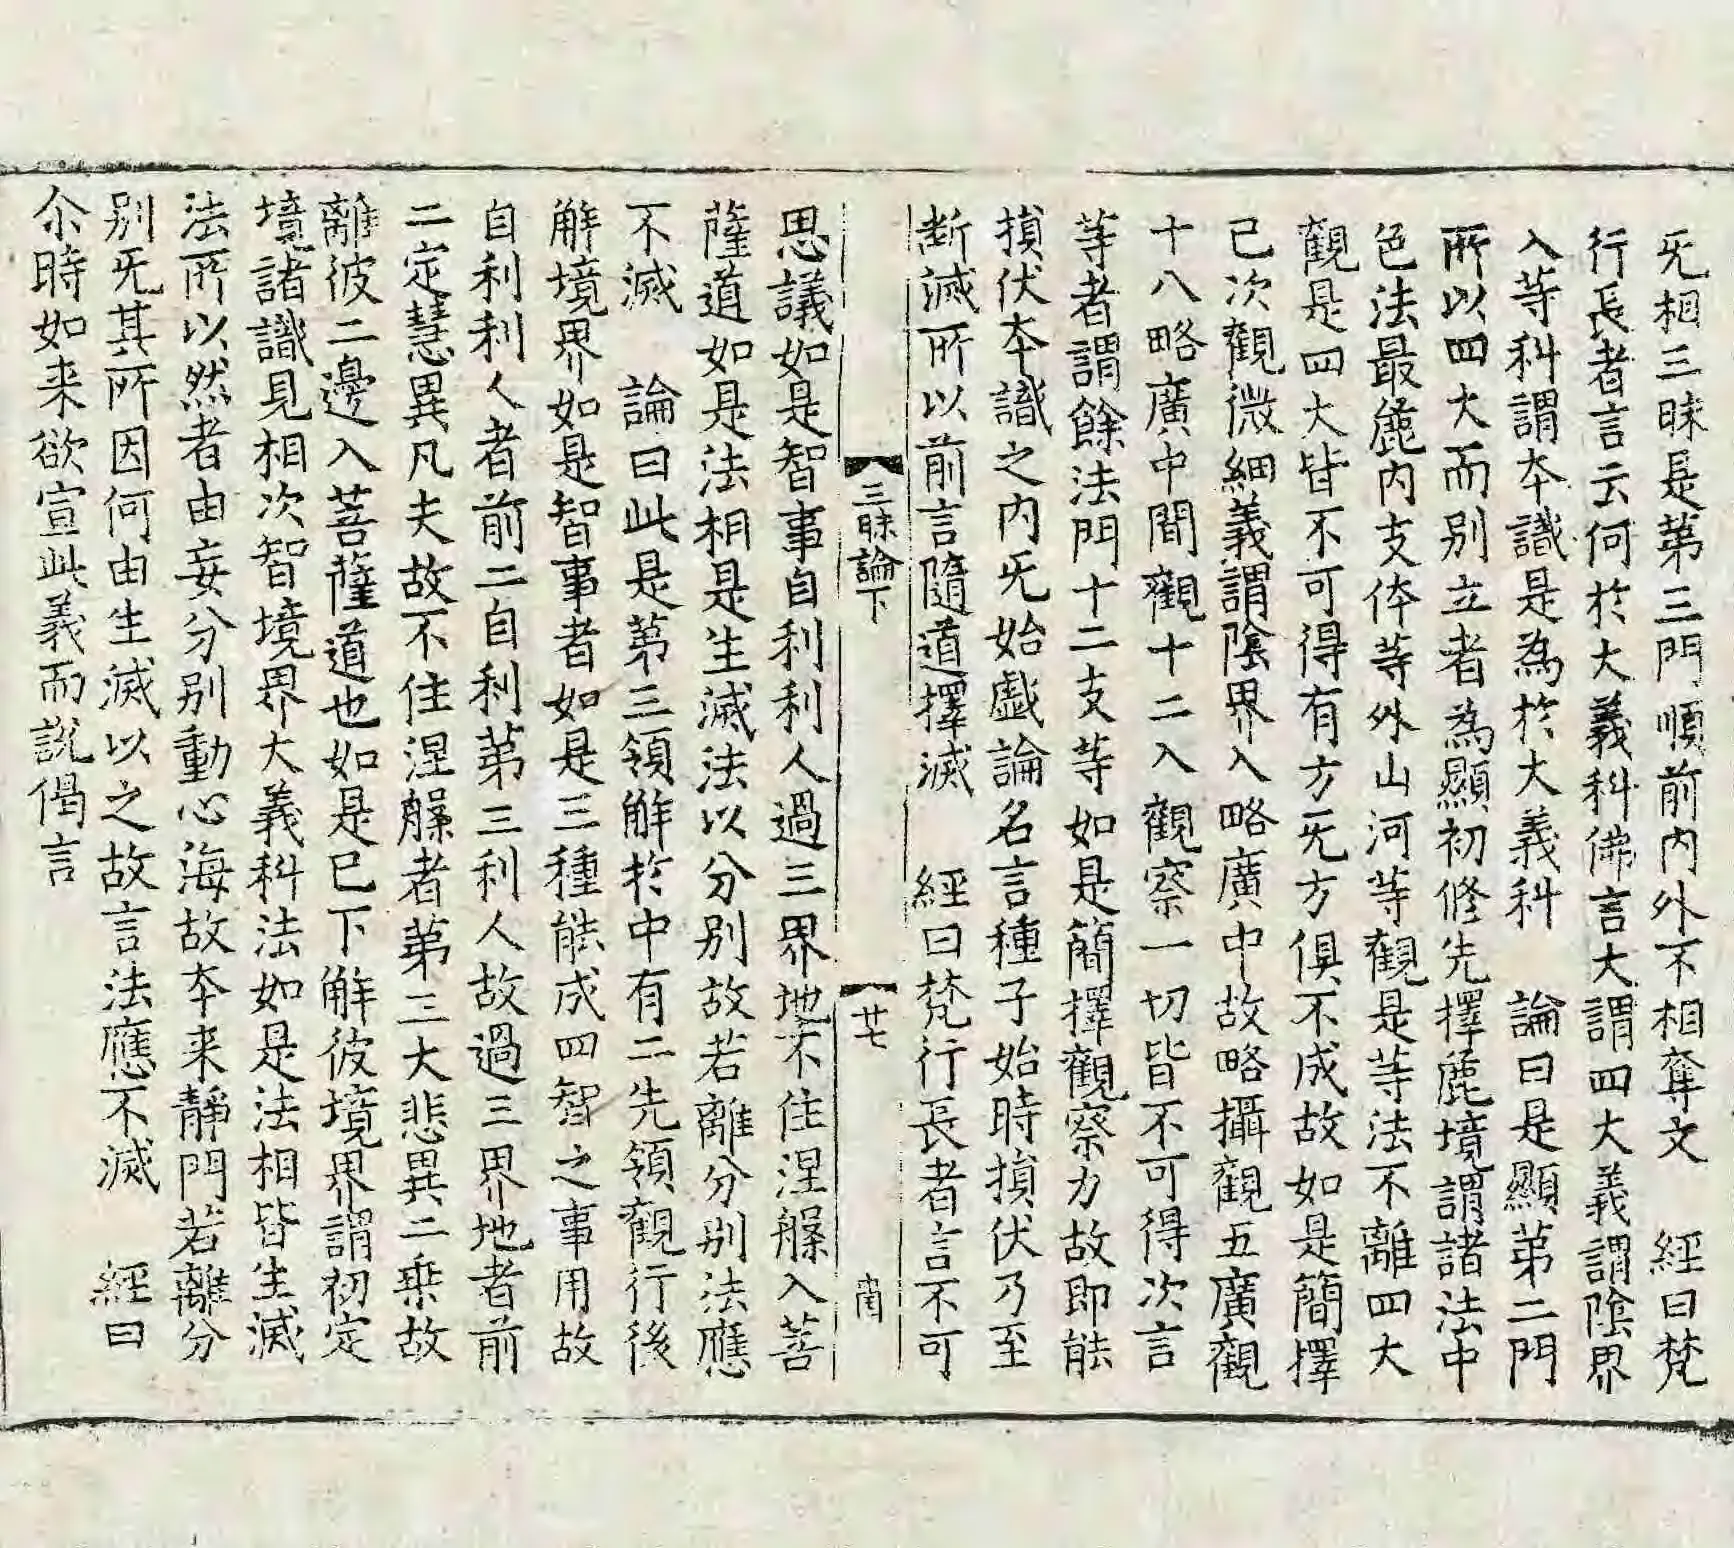 旡相三昧是第三門順前内外不相奪文　經曰梵
行長者言云何於大義科佛言大謂四大義謂陰界
入等科謂本識是為於大義科　論曰是顯第二門
所以四大而别立者為顯初修先擇麁境謂諸法中
色法最麁内支体等外山河等觀是等法不離四大
觀是四大皆不可得有方旡方俱不成故如是簡擇
已次觀微細義謂陰界入略廣中故略攝觀五廣觀
十八略廣中間觀十二入觀察一切皆不可得次言
等者謂餘法門十二支等如是簡擇觀察力故即能
損伏本識之内旡始戯論名言種子始時損伏乃至
断滅所以前言隨道擇滅　經曰梵行長者言不可
三昧論下　廿七　南
思議如是智事自利利人過三界地不住涅槃入菩
薩道如是法相是生滅法以分别故若離分别法應
不滅　論曰此是第三領解於中有二先領觀行後
解境界如是智事者如是三種能成四智之事用故
自利利人者前二自利第三利人故過三界地者前
二定慧異凡夫故不住涅槃者第三大悲異二乗故
離彼二邊入菩薩道也如是已下解彼境界謂初定
境諸識見相次智境界大義科法如是法相皆生滅
法所以然者由妄分别動心海故本来静門若離分
别旡其所因何由生滅以之故言法應不滅　經曰
尒時如来欲宣此義而說偈言